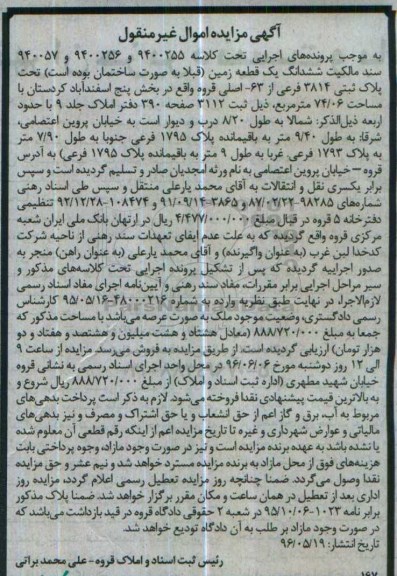 آگهی مزایده اموال غیرمنقول
به موجب پرونده‌های اجرایی تحت کلاسه ۹۴۰۰۲۵۵ و ۹۴۰۰۲۵۶ و ۹۴۰۰۵۷
سند مالکیت ششدانگ یک قطعه زمین (قبلا به صورت ساختمان بوده است) تحت
پلاک ثبتی ۳۸۱۴ فرعی از ۶۳- اصلی قروه واقع در بخش پنج اسفندآباد کردستان با
مساحت ۷۴/۰۶ مترمربع، ذیل ثبت ۳۱۱۲ صفحه ۳۹۰ دفتر املاک جلد ۹ با حدود
اربعه ذیل‌الذکر: شمالا به طول ۸/۲۰ درب و دیوار است به خیابان پروین اعتصامی،
شرقا: به طول ۹/۴۰ متر به باقیمانده پلاک ۱۷۹۵ فرعی جنوبا به طول ۷/۹۰ متر
به پلاک ۱۷۹۳ فرعی. غربا به طول ۹ متر به باقیمانده پلاک ۱۷۹۵ فرعی) به آدرس
قروه – خیابان پروین اعتصامی به نام ورثه امجدیان صادر و تسلیم گردیده است و سپس
برابر یکسری نقل و انتقالات به آقای محمد یارعلی منتقل و سپس طی اسناد رهنی
شماره‌های ۹۸۲۸۵-۸۷/۰۷/۲۲ و ۳۸۶۵-۹۱/۰۹/۱۴ و ۱۰۸۴۷۴-۹۲/۱۲/۲۸ تنظیمی
دفترخانه ۵ قروه در قبال مبلغ ۴/۴۷۷/۰۰۰/۰۰۰ ریال در ارتهان بانک ملی ایران شعبه
مرکزی قروه واقع گردیده که به علت عدم ایفای تعهدات سند رهنی از ناحیه شرکت
کدخدا لبن غرب (به عنوان واگیرنده) و آقای محمد یارعلی (به عنوان راهن) منجر به
صدور اجراییه گردیده که پس از تشکیل پرونده اجرایی تحت کلاسه‌های مذکور و
سیر مراحل اجرایی برابر مقررات، مفاد سند رهنی و آیین‌نامه اجرای مفاد اسناد رسمی
لازم‌الاجرا، در نهایت طبق نظریه وارده به شماره ۴۸۰۰۰۲۱۶-۹۵/۰۵/۱۶ کارشناس
رسمی دادگستری، وضعیت موجود ملک به صورت عرصه می‌باشد با مساحت مذکور که
جمعا به مبلغ ۸۸۸/۷۲۰/۰۰۰ (معادل هشتاد و هشت میلیون و هشتصد و هفتاد و دو
هزار تومان) ارزیابی گردیده است. از طریق مزایده به فروش می‌رسد. مزایده از ساعت ۹
الی ۱۲ روز دوشنبه مورخ ۹۶/۰۶/۰۶ در محل واحد اجرای اسناد رسمی به نشانی قروه
خیابان شهید مطهری (اداره ثبت اسناد و املاک) از مبلغ ۸۸۸/۷۲۰/۰۰۰ ریال شروع و
به بالاترین قیمت پیشنهادی نقدا فروخته می‌شود. لازم به ذکر است پرداخت بدهی‌های
مربوط به آب، برق و گاز اعم از حق انشعاب و یا حق اشتراک و مصرف و نیز بدهی‌های
مالیاتی و عوارض شهرداری و غیره تا تاریخ مزایده اعم از اینکه رقم قطعی آن معلوم شده
یا نشده باشد به عهده برنده مزایده است و نیز در صورت وجود مازاد، وجوه پرداختی بابت
هزینه‌های فوق از محل مازاد به برنده مزایده مسترد خواهد شد و نیم عشر و حق مزایده
نقدا وصول می‌گردد. ضمنا چنانچه روز مزایده تعطیل رسمی اعلام گردد، مزایده روز
اداری بعد از تعطیل در همان ساعت و مکان مقرر برگزار خواهد شد. ضمنا پلاک مذکور
برابر نامه ۱۰۲۳-۹۵/۱۰/۰۶ در شعبه ۲ حقوقی دادگاه قروه در قید بازداشت می‌باشد که
در صورت وجود مازاد بر طلب به آن دادگاه تودیع خواهد شد.
تاریخ انتشار: ۹۶/۰۵/۱۹
رئیس ثبت اسناد و املاک قروه – علی محمد براتی